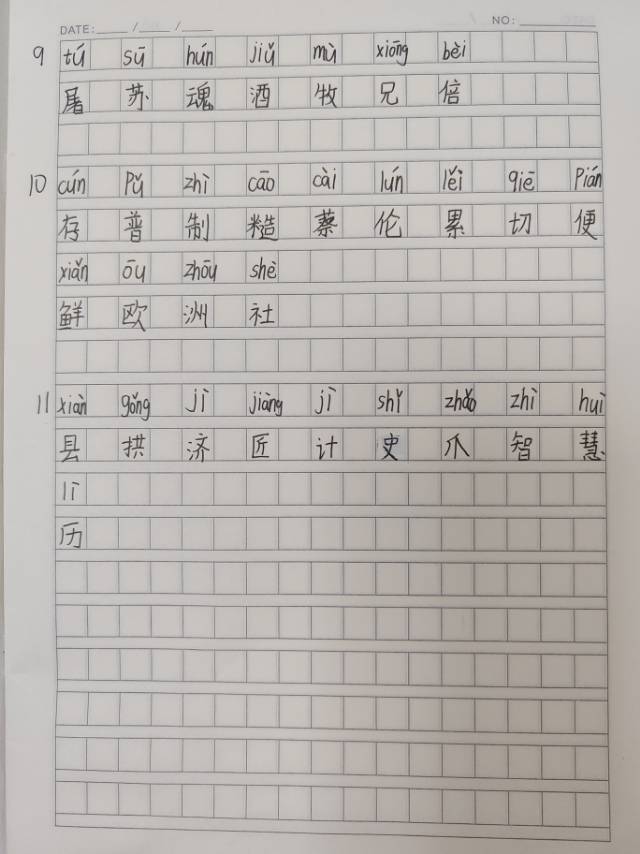 DATE: / / NO:
9 tú sū hún jiǔ mù xiōng bèi
屠 苏 魂 酒 牧 兄 倍
10 cún pǔ zhì cāo cài lún lěi qiē pián
存 普 制 糙 蔡 伦 累 切 便
xiǎn ōu zhōu shè
鲜 欧 洲 社
11 xiàn gǒng jì jiàng jì shǐ zhǎo zhì huì
县 拱 济 匠 计 史 爪 智 慧
lì
历